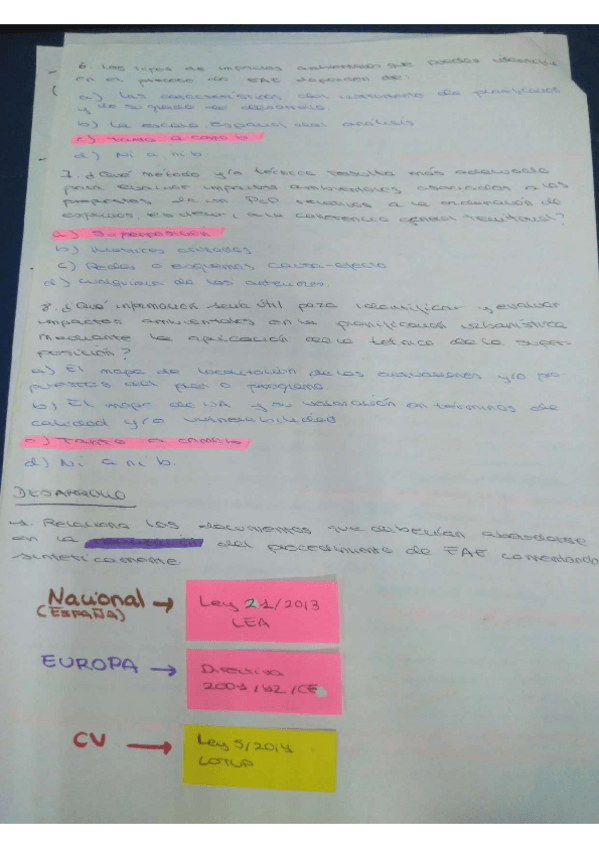 6. Los tipos de impactos ambientales que pueden identificarse
en el proceso de EAE dependen de:
a) Las características del instrumento de planificación
y de su grado de desarrollo.
b) La escala espacial del análisis
c) Tanto a como b
d) Ni a ni b
7. ¿Qué método y/o técnica resulta más adecuado
para evaluar impactos ambientales asociados a las
propuestas de un PoP relativos a la ordenación de
espacios, es decir, a la coherencia general territorial?
a) Superposición
b) Matrices cruzadas
c) Redes o esquemas causa-efecto
d) Cualquiera de las anteriores.
8. ¿Qué información sería útil para identificar y evaluar
impactos ambientales en la planificación urbanística
mediante la aplicación de la técnica de la super-
posición?
a) El mapa de localización de las actuaciones y/o pro
puestas del plan o programa.
b) El mapa de UA y su valoración en términos de
calidad y/o vulnerabilidad
c) Tanto a como b
d) Ni a ni b.
DESARROLLO
1. Relaciona los documentos que deberían abordarse
en la del procedimiento de EAE comentando
sintéticamente
Nacional → Ley 21/2013
(ESPAÑA) LEA
EUROPA → Directiva
2001/42/CE
CV → Ley 5/2014
LOTUP